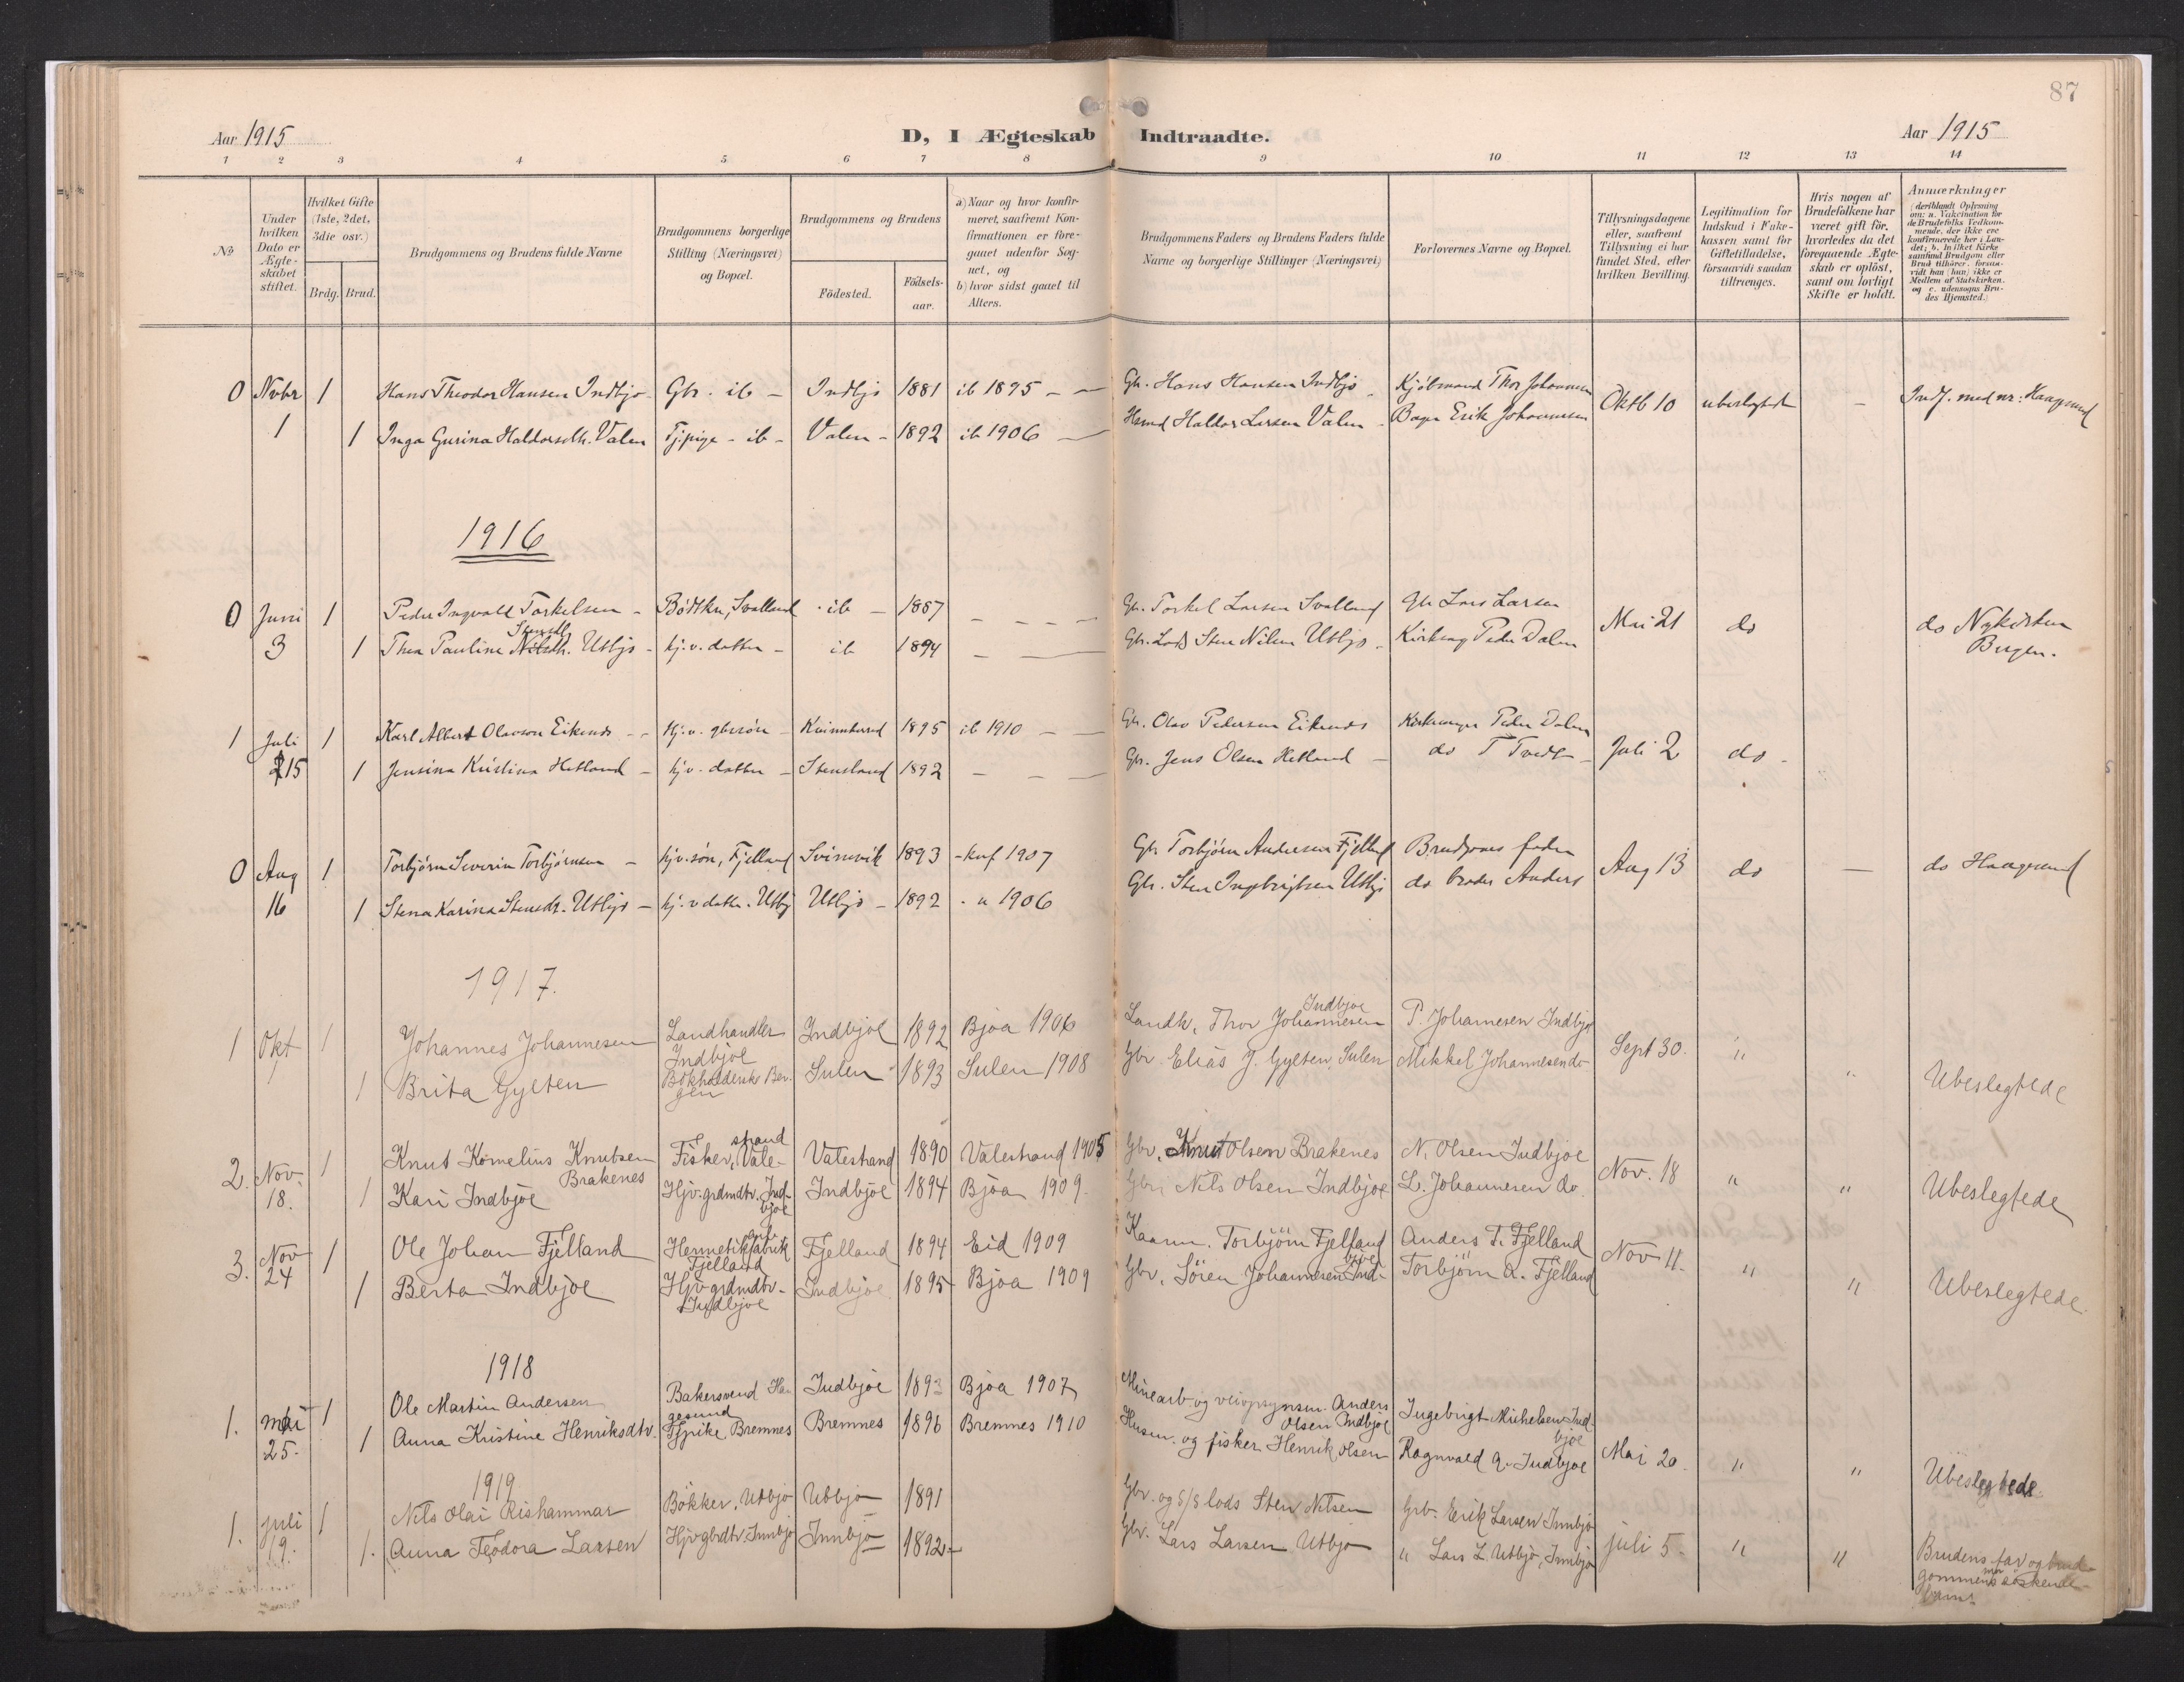 87
Aar 1915
D, I Ægteskab Indtraadte.
Aar 1915
1 2 3 4 5 6 7 8 9 10 11 12 13 14
No
Under hvilken Dato er Ægteskabet stiftet.
Hvilket Gifte (1ste, 2det, 3die osv.)
Brdg. Brud.
Brudgommens og Brudens fulde Navne
Brudgommens borgerlige Stilling (Næringsvei) og Bopæl.
Brudgommens og Brudens
Fødested.
Fødselsaar.
a) Naar og hvor konfirmeret, saafremt Konfirmationen er foregaaet udenfor Sognet, og
b) hvor sidst gaaet til Alters.
Brudgommens Faders og Brudens Faders fulde Navne og borgerlige Stillinger (Næringsvei)
Forlovernes Navne og Bopæl.
Tillysningsdagene eller, saafremt Tillysning ei har fundet Sted, efter hvilken Bevilling.
Legitimation for Indskud i Enkekassen samt for Giftetilladelse, forsaavidt saadan tiltrænges.
Hvis nogen af Brudefolkene har været gift før, hvorledes da det foregaaende Ægteskab er opløst, samt om lovligt Skifte er holdt.
Anmærkninger
0 Nvbr 1 Hans Theodor Hansen Indbjo - Gbr. ib - Indbjo 1881 ib 1895 - - Gbr. Hans Hansen Indbjo Kjøbmand Thor Johannesen Oktb 10 ubeslegtede - Indf. med nr: Haagesund
1 1 Inga Gurina Haldorsdtr. Valen Tjpige - ib - Valen - 1892 ib 1906 - Husmd Haldor Larsen Valen - Bager Erik Johannesen
1916
0 Juni 1 Peder Ingvald Torkelsen - Bødtker, Svolland - ib - 1887 - - - Gbr. Torkel Larsen Svolland Gbr Lars Larsen Mai 21 do do Nykirken
3 1 Thea Pauline Stensdtr. Utbjo - hj.v. datter - ib 1894 - Gbr. Lods Sten Nilsen Utbjo - Kirkesang Peder Dalen Bergen.
1 Juli 1 Karl Albert Olavson Eikenes - - hj.v. gbrsøn - Kvinnherred 1895 ib 1910 - - Gbr. Olav Pedersen Eikenes Kirkesanger Peder Dalen Juli 2 do -
15 1 Jensina Kristina Hetland - hjv. datter - Stensland 1892 - - - Gbr. Jens Olsen Hetland - do T Tvedt -
0 Aug 1 Torbjørn Severin Torbjørnsen - hjv. søn, Fjelland Svinevik 1893 - kuf 1907 Gbr Torbjørn Andersen Fjelland Brudgoms fader Aug 13 do - do Haagesund
16 1 Stena Karina Stensdtr. Utbjo - hj.v datter. Utbj Utbjo - 1892 - " 1906 Gbr. Sten Ingebrigtsen Utbjo do broder Anders
1917.
1 Okt 1 Johannes Johannesen Landhandler Indbjoe Indbjoe 1892 Bjoa 1906 Landh, Thor Johannesen Indbjoe P. Johannesen Indbjo Sept 30. "
1 1 Brita Gylten Bokholderske Bergen Sulen 1893 Sulen 1908 Gbr. Elias J. Gylten, Sulen Mikkel Johannesen do " Ubeslegtede
2. Nov. 1 Knut Kornelius Knutsen Brakenes Fisker, Valestrand Valestrand 1890 Valestrand 1905 Gbr. Knut Olsen Brakenes N. Olsen Indbjoe Nov. 18 " " Ubeslegtede
18. 1 Kari Indbjoe Hjv. grdmdtr. Indbjoe Indbjoe 1894 Bjoa 1909. Gbr. Nils Olsen Indbjoe L. Johannesen do.
3. Nov 1 Ole Johan Fjelland Hermetikfabrikarb. Fjelland Fjelland 1894 Eid 1909 Kaarm. Torbjörn Fjelland Anders T. Fjelland Nov. 11. " " Ubeslegtede
24 1 Berta Indbjoe Hjv grdmdtr - Indbjoe Indbjoe 1895 - Bjoa 1909 Gbr, Sören Johannesen Indbjoe Torbjörn A. Fjelland
1918
1. mai 1 Ole Martin Andersen Bakersvend Haugesund Indbjoe 1893 Bjoa 1907 Minearb. og veiopsynsm. Anders Olsen Indbjoe Ingebrigt Mikelsen Indbjoe Mai 20. " " Ubeslegtede
25. 1 Anna Kristine Henriksdtr. Bremnes Bremnes 1896 Bremnes 1910 Husm. og fisker Henrik Olsen Ragnvald A. Indbjoe
1919
1. juli 1 Nils Olai Rishammar Bökker, Utbjo Utbjo 1891 Gbr. og lods Sten Nilsen Grb. Erik Larsen Innbjo juli 5. " "
19. 1. Anna Teodora Larsen Hjv gbrdtr. Innbjo Innbjo 1892 - Gbr. Lars Larsen Utbjo " Lars L Utbjo, Innbjo Brudens far og brudgommens mor søskendebarn